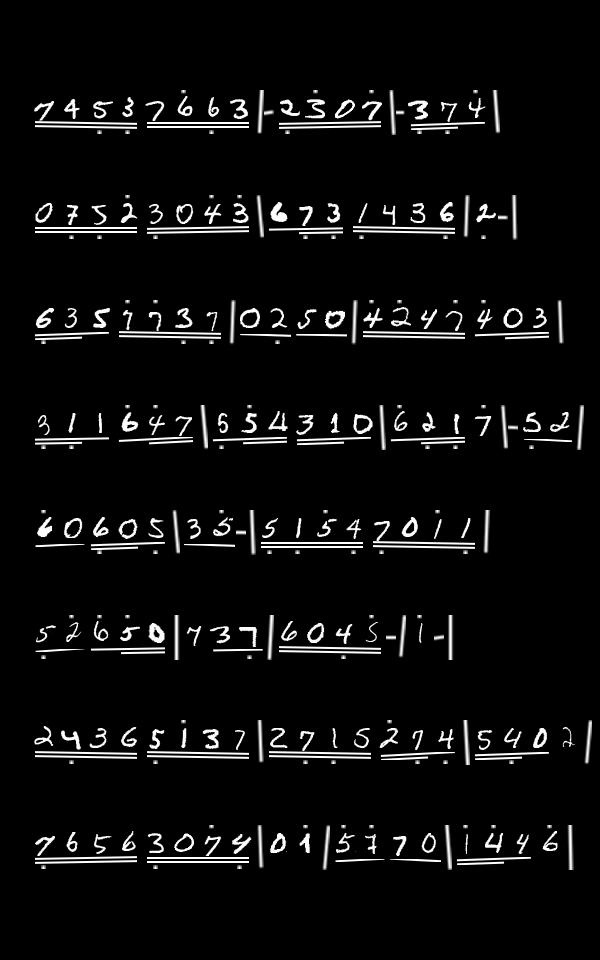 7453 7663|-2307|-374|
0752 3043|673 1436|2-|
635 7737|0250|4247 403|
311 647|554310|6217|-52|
60605|35-|5154 7011|
52650|737|6045-|1-|
2436 5137|2715 274|5402|
7656 3074|01|5770|1446|